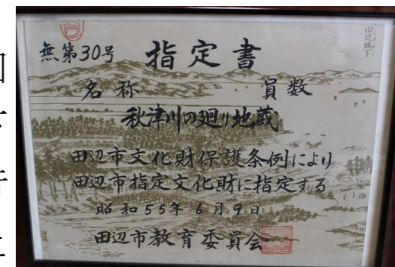 無第30号 指定書
名称 員数
秋津川の廻り地蔵
田辺市文化財保護条例により
田辺市指定文化財に指定する
昭和55年6月9日
田辺市教育委員会